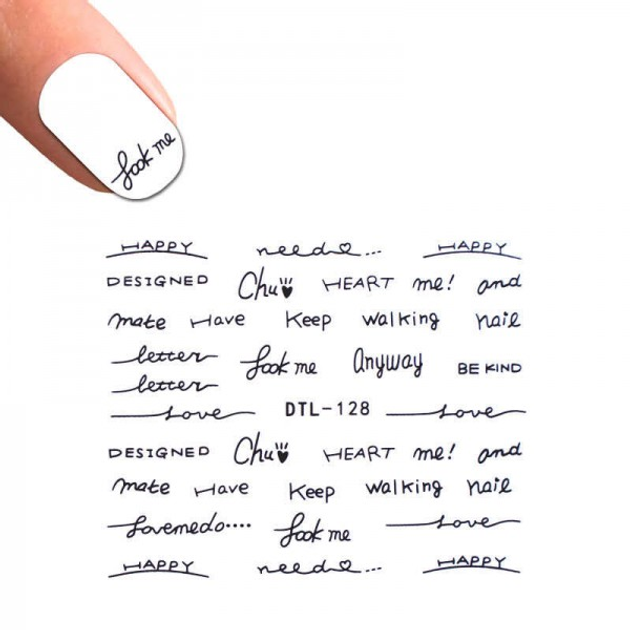 look me
HAPPY need... HAPPY
DESIGNED Chu HEART me! and
make Have Keep walking nail
letter look me Anyway BE KIND
letter
Love DTL-128 Love
DESIGNED Chu HEART me! and
make Have Keep walking nail
Lovemedo.... look me Love
HAPPY need... HAPPY